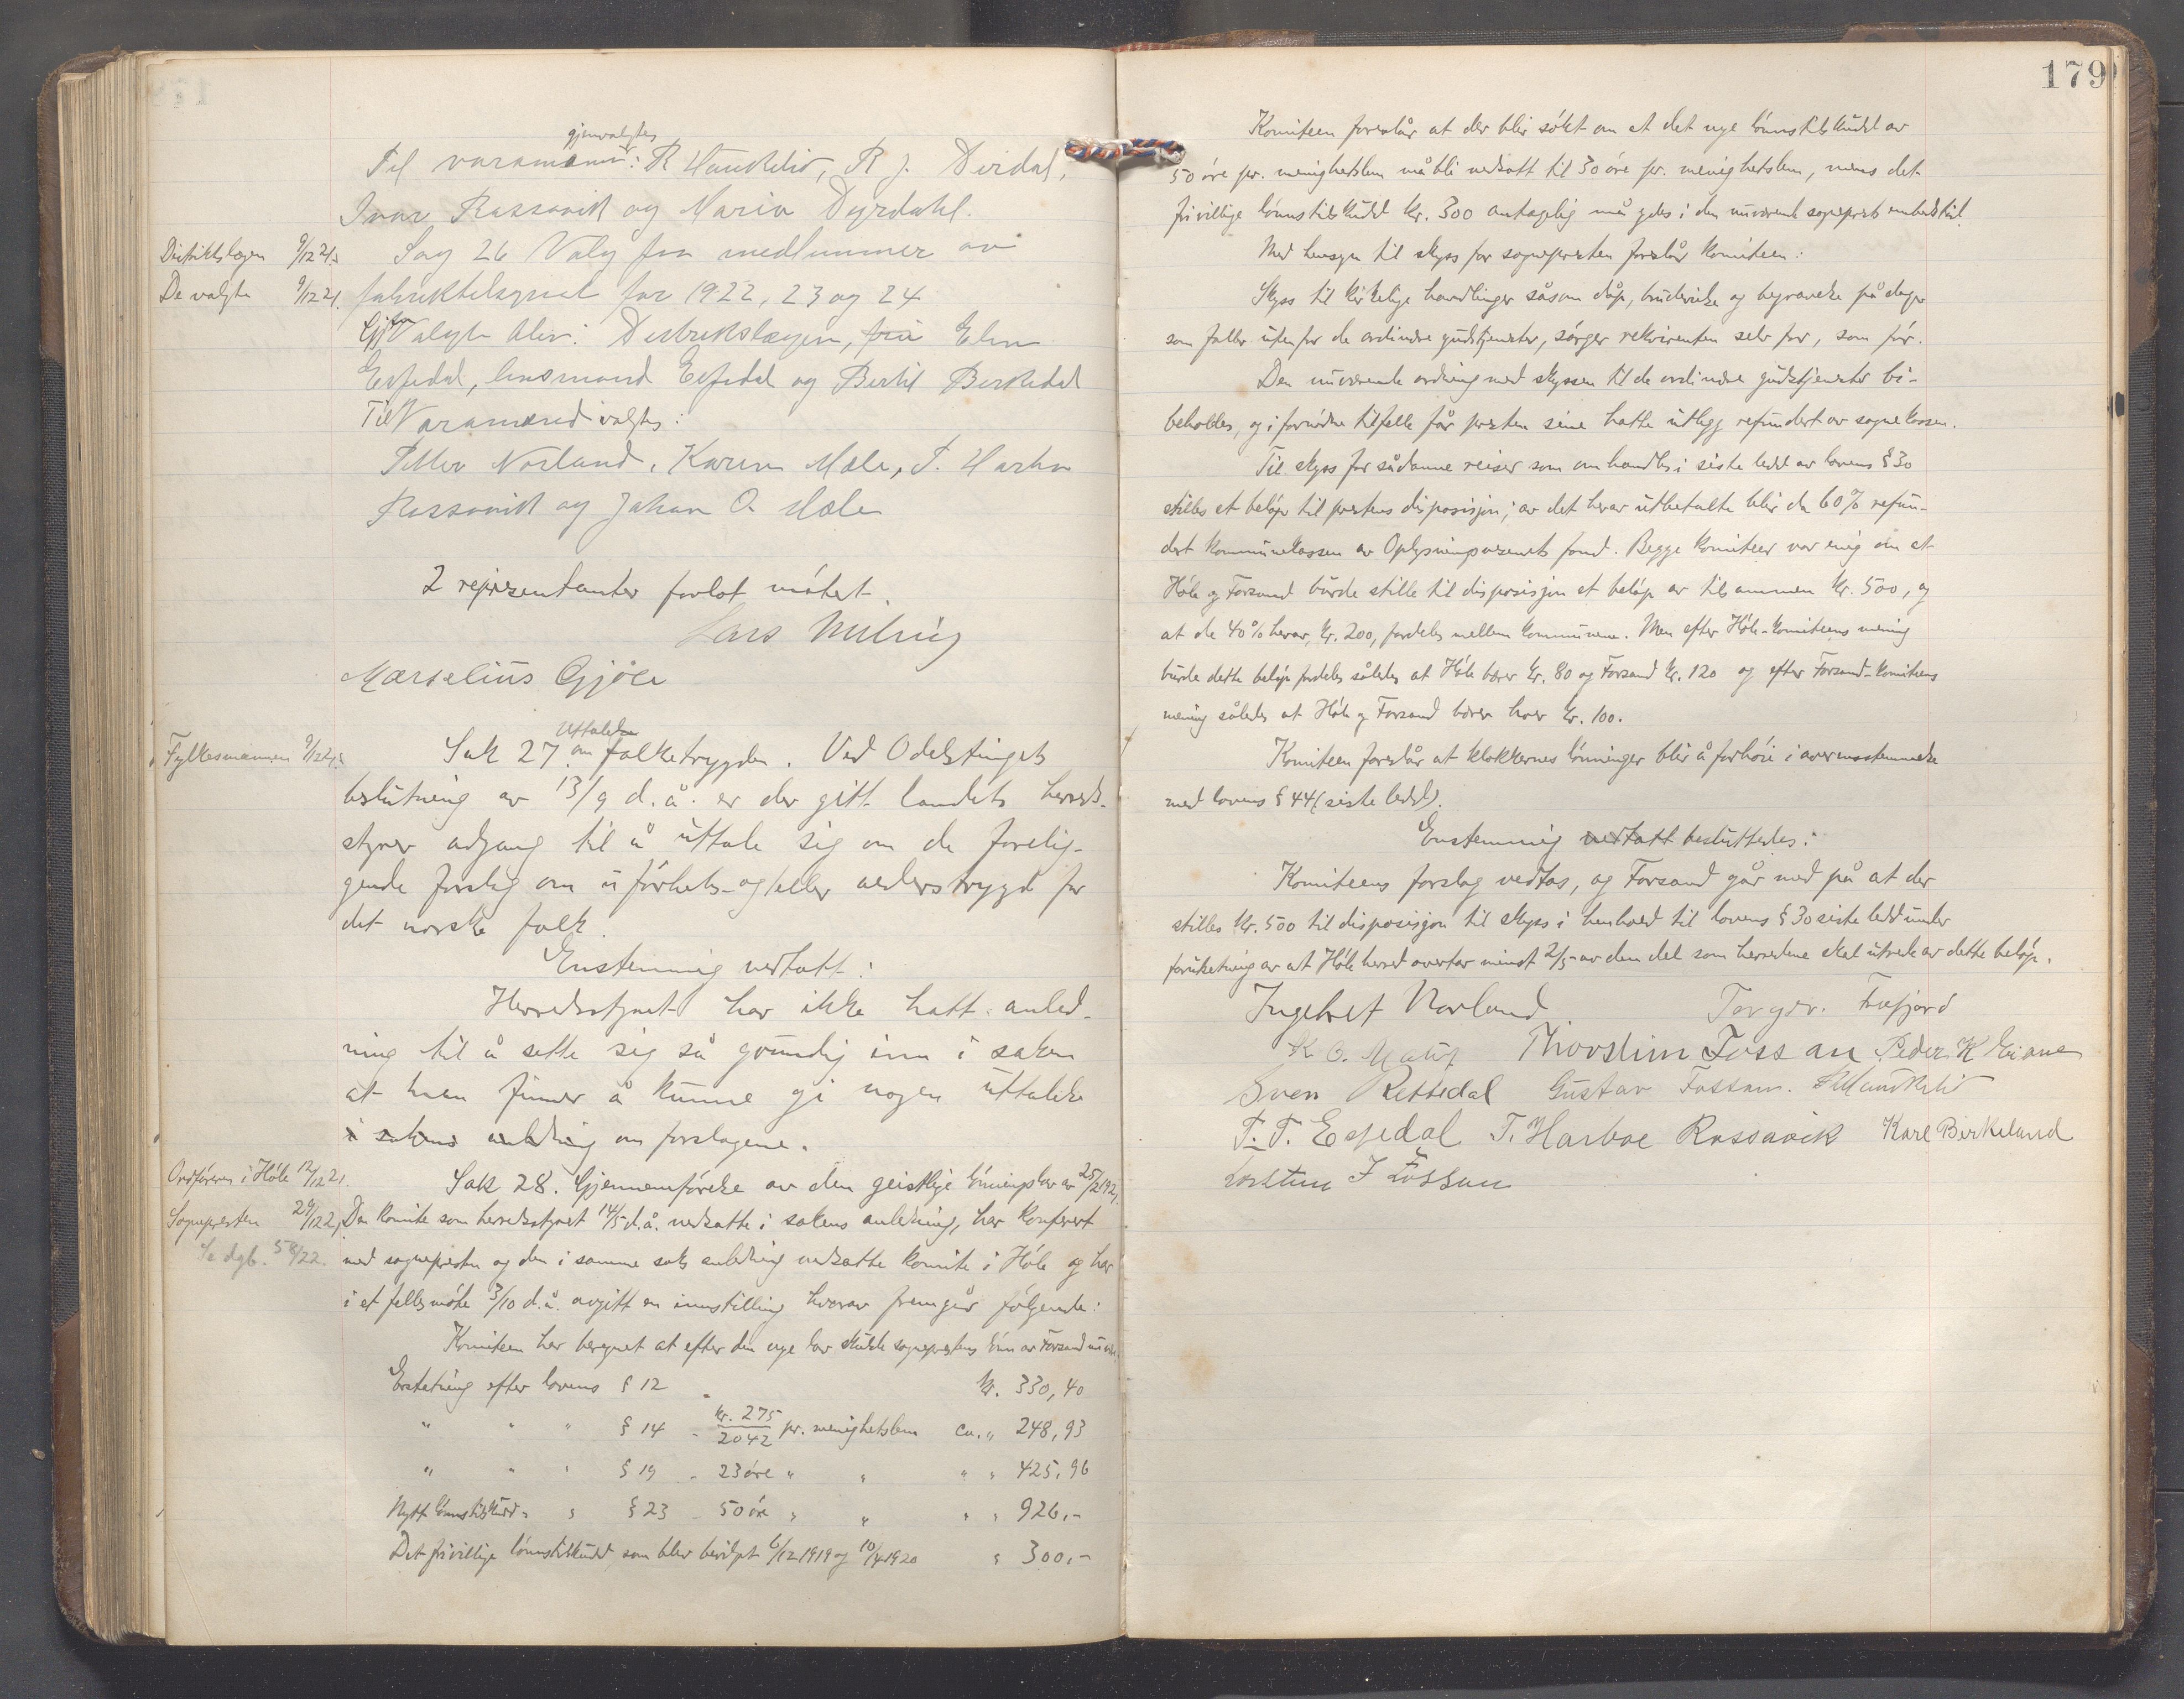 gjenvalgtes
Til varamænn: R Haukelid, R J. Dirdal,
Ivar Rossavik og Maria Dyrdahl.
Distriktslægen 9/12 21.
De valgte 9/12 21.
Sag 26 Valg fra medlemmer av
fabriktilsynet for 1922, 23 og 24
Valgte blev: Distrikslægen, fru Elen
Espedal, lensmand Espedal og Bertil Berkedal
Til Varamænd valgtes:
Petter Norland, Karen Mæle, T. Harbo
Rossavik og Johan O. Mæle
2 representanter forlot møtet.
Lars
Marselius Gjøse
Fylkesmannen 9/12 21.
Uttalelse
Sak 27. om folketrygden. Ved Odelstingets
beslutning av 13/9 d.å. er der gitt landets herreds-
styrer adgang til å uttale sig om de forelig-
gende forslag om uførhets- og/eller alderstrygd for
det norske folk.
Enstemmig vedtatt:
Herredsstyret har ikke hatt anled-
ning til å sette sig så grundig inn i saken
at man finner å kunne gi nogen uttalelse
i sakens anledning om forslagene.
Ordføreren i Høle 12/12 21.
Sognepresten 29/12 22,
Se dgb. 58/22.
Sak 28. Gjennemførelse av den geistlige lønningslov av 25/2 1921.
Den komite som herredsstyret 14/5 d.å. nedsatte i sakens anledning, har konferert
med sognepresten og den i samme saks anledning nedsatte komite i Høle og har
i et fellesmøte 3/10 d.å. avgitt en innstilling hvorav fremgår følgende:
Komiteen har beregnet at efter den nye lov skulde sogneprestens lønn av Forsand
Erstatning efter lovens § 12 kr. 330,40
" " " § 14 - kr. 275/2042 pr. menighetslem ca. " 248,93
" " " § 19 - 23 øre " " " " 425,96
Nytt lønnstilskudd " " § 23 - 50 øre " " " " 926,-
Det frivillige lønnstilskudd som blev bevilget 6/12 1919 og 10/4 1920 " 300,-
179
Komiteen foreslår at der blir søkt om at det nye lønnstilskudd av
50 øre pr. menighetslem må bli nedsatt til 30 øre pr. menighetslem, mens det
frivillige lønnstilskudd kr. 300 antagelig må ydes i den nuværende sogneprests embedstid.
Med hensyn til skyss for sognepresten foreslår komiteen:
Skyss til kirkelige handlinger såsom dåp, brudevielse og begravelse på dager
som faller utenfor de ordinære gudstjenester, sørger rekvirenten selv for, som før.
Den nuværende ordning med skyssen til de ordinære gudstjenester bi-
beholdes, og i fornødne tilfelle får presten sine hatte utlegg refundert av sognekassen.
Til skyss for sådanne reiser som omhandles i siste ledd av lovens § 30
stilles et beløp til prestens disposisjon; av det herav utbetalte blir da 60% refun-
dert kommunekassen av Oplysningsvesenets fond. Begge komiteer var enig om at
Høle og Forsand burde stille til disposisjon et beløp av tilsammen kr. 500, og
at de 40% herav, kr. 200, fordeles mellem kommunene. Men efter Høle-komiteens mening
burde dette beløp fordeles således at Høle bærer kr. 80 og Forsand kr. 120 og efter Forsand-komiteens
mening således at Høle og Forsand bærer hver kr. 100.
Komiteen foreslår at klokkernes lønninger blir å forhøie i overensstemmelse
med lovens § 44 (siste ledd).
Enstemmig vedtatt besluttedes:
Komiteens forslag vedtas, og Forsand går med på at der
stilles kr. 500 til disposisjon til skyss i henhold til lovens § 30 siste ledd under
forutsetning av at Høle herred overtar minst 2/5 av den del som herredene skal utrede av dette beløp.
Ingebret Norland Torger. Frafjord
K. O. Thorstein Fossan Peder K Eiane
Sven Rettedal Gustav Fossan. R Haukelid
T. T. Espedal T. Harboe Rossavik Karl Berkeland
Torstein J Fossan